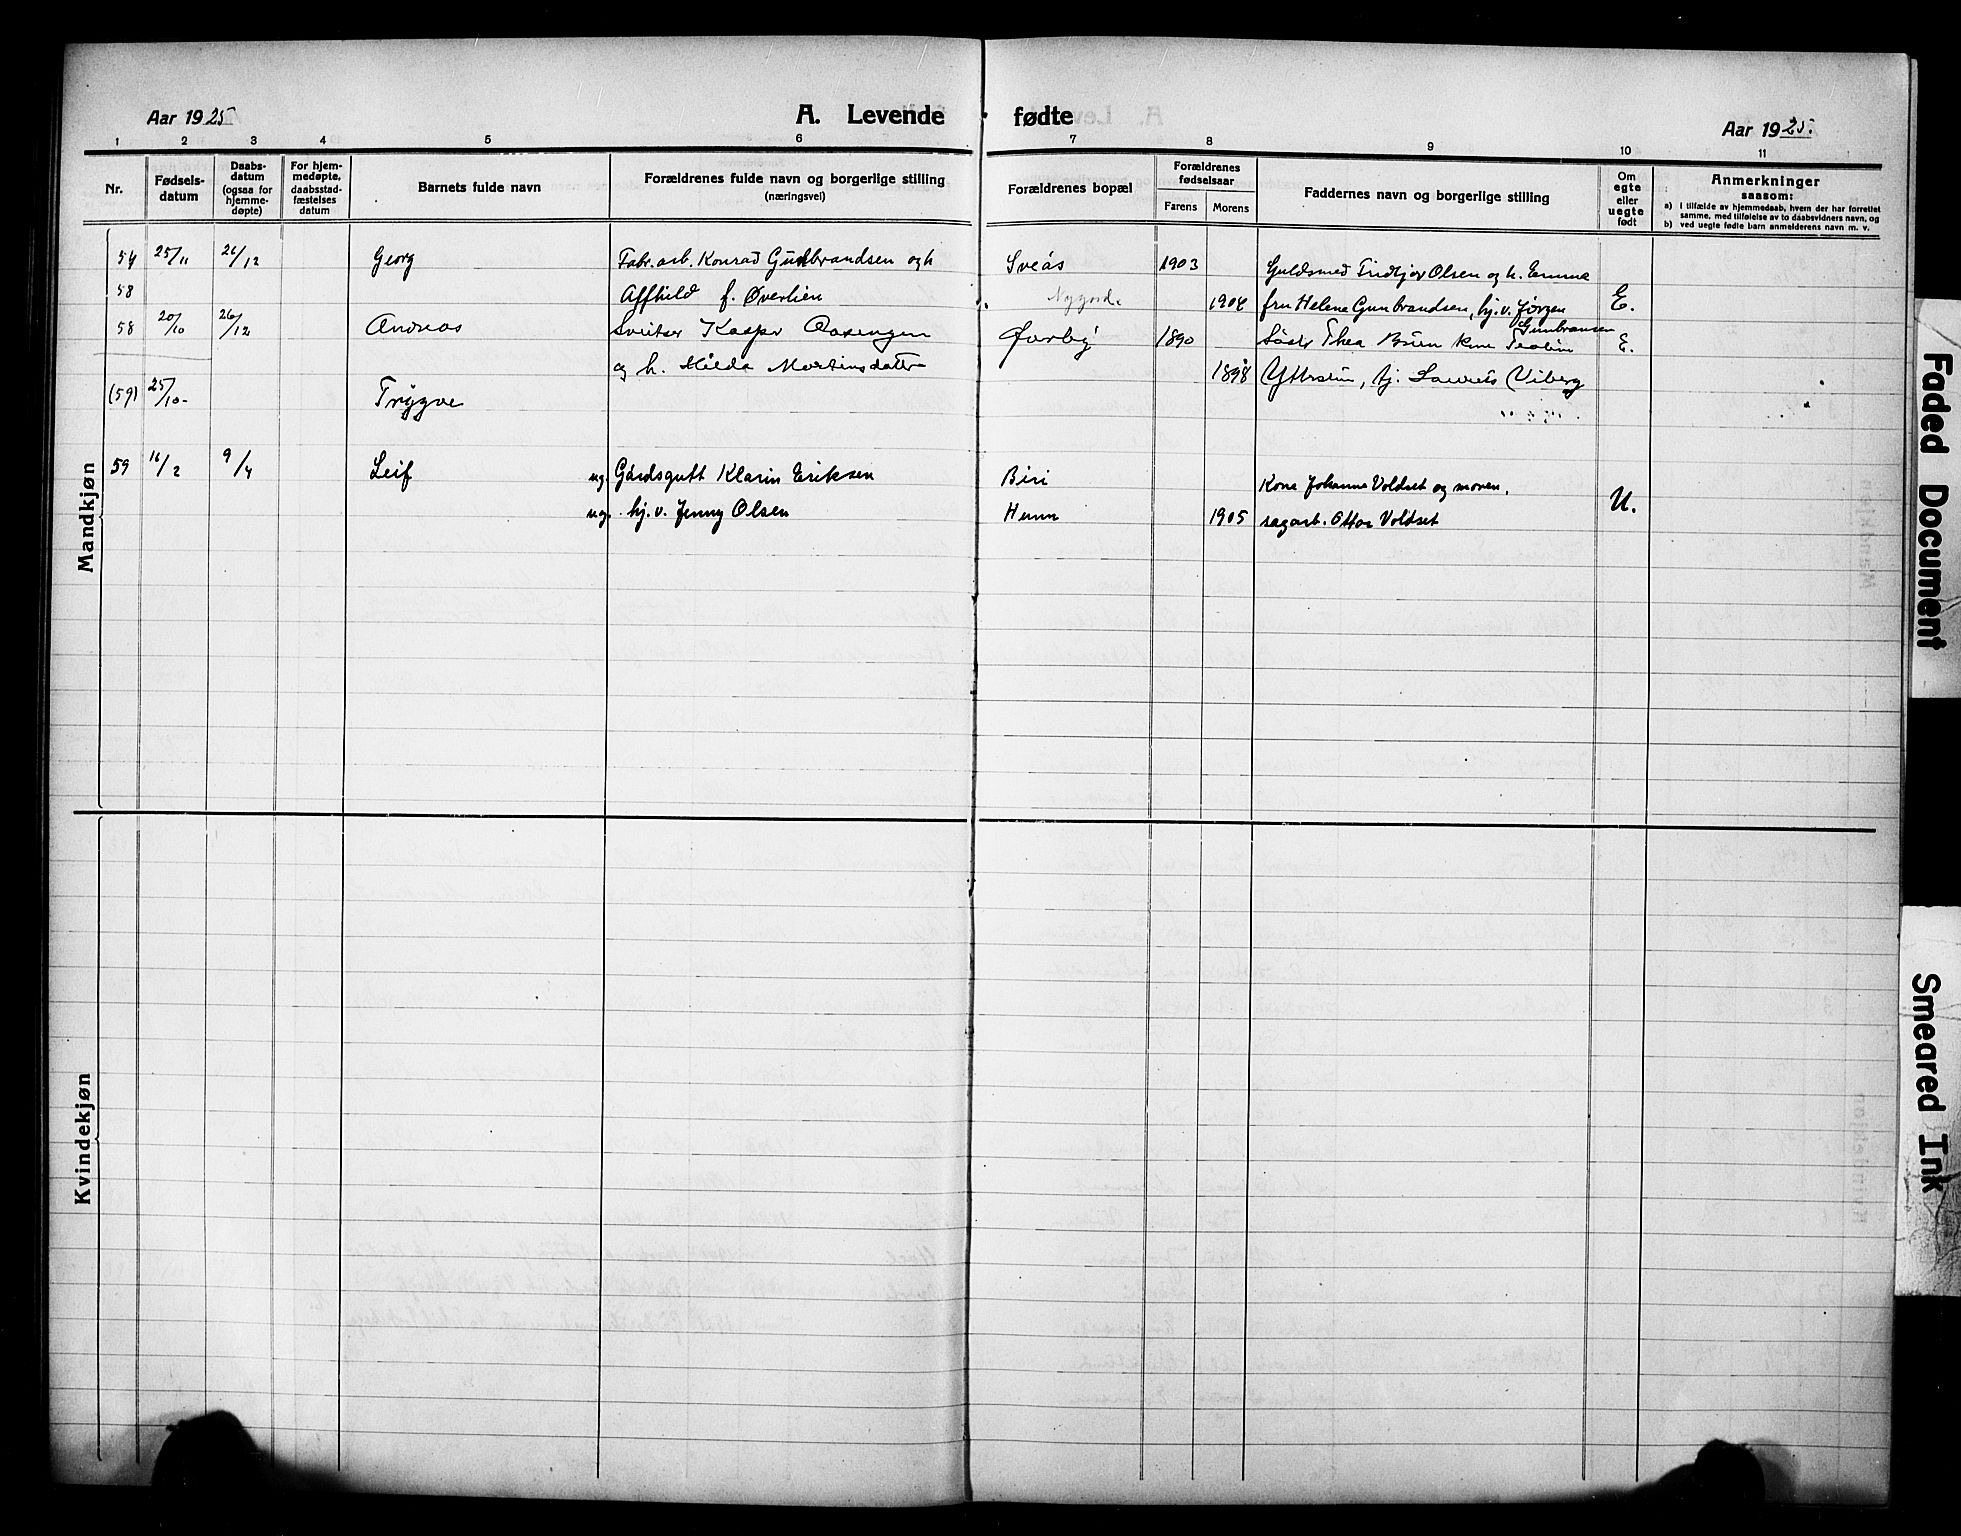 Aar 1925
A. Levende fødte
Aar 1925.
1 2 3 4 5 6 7 8 9 10 11
Nr.
Fødsels-
datum
Daabs-
datum
(ogsaa for
hjemme-
døpte)
For hjem-
medøpte,
daabsstad-
fæstelses
datum
Barnets fulde navn
Forældrenes fulde navn og borgerlige stilling
(næringsvei)
Forældrenes bopæl
Forældrenes
fødselsaar
Farens Morens
Faddernes navn og borgerlige stilling
Om
egte
eller
uegte
født
Anmerkninger
saasom:
a) I tilfælde av hjemmedaab, hvem der har forrettet
samme, med tilføielse av to daabsvidners navn, og
b) ved uegte fødte barn anmelderens navn m. v.
Mandkjøn
57 25/11 26/12 Georg Fabr.arb. Konrad Gudbrandsen og h Sveås 1903 Guldsmed Olsen og h. Emma
58 f. Øverlien Nygord. 1904 fru Helene Gunbrandsen, hj.v. Jørgen E.
Gunbransen
58 20/10 26/12 Andreas Sveitser Kasper 1890 Thea E.
og h. Milda Martinsdatter 1898 hj.
(59) 25/10- Trygve
59 16/2 9/4 Leif ug. Gårdsgutt Klarin Eriksen Biri Kona Johanna Voldset og moren,
ug. hj.v. Jenny Olsen Hunn 1905 sagarb. Ottar Voldset U.
Kvindekjøn
Faded Document
Smeared Ink